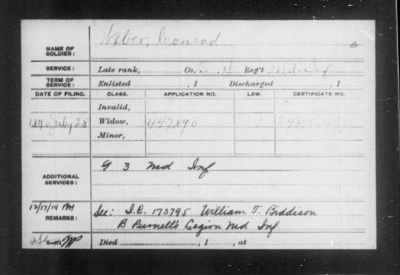 Weber, Conrad
NAME OF SOLDIER:
SERVICE: Late rank, Co. Reg't Md. Inf
TERM OF SERVICE: Enlisted , 1 Discharged , 1
DATE OF FILING. CLASS. APPLICATION NO. LAW. CERTIFICATE NO.
Invalid,
1890 July 28 Widow,
Minor,
G 3 Md Inf
ADDITIONAL SERVICES:
12/17/14
REMARKS: See: I.C. 173795 William T. Biddison
B Purnell's Legion Md Inf
Died , 1 , at